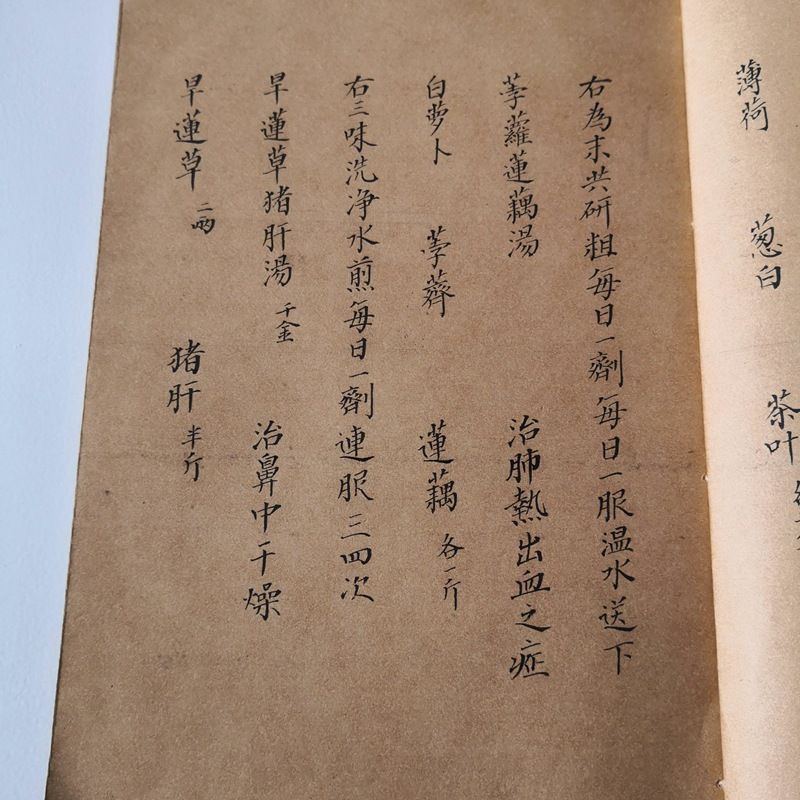 薄荷 葱白 茶叶
右為末共研粗每日一劑每日一服温水送下
荸蘿蓮藕湯 治肺熱出血之症
白萝卜 荸薺 蓮藕 各一斤
右三味洗净水煎每日一劑連服三四次
旱蓮草猪肝湯 千金 治鼻中干燥
旱蓮草 二两 猪肝 半斤